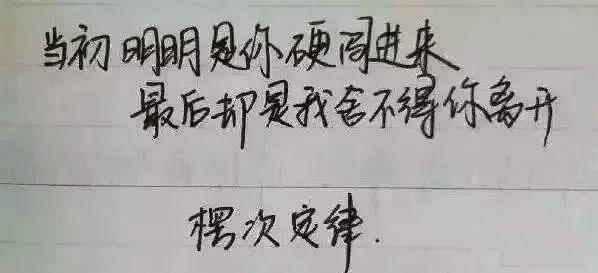 当初明明是你硬闯进来
最后却是我舍不得你离开
楞次定律.